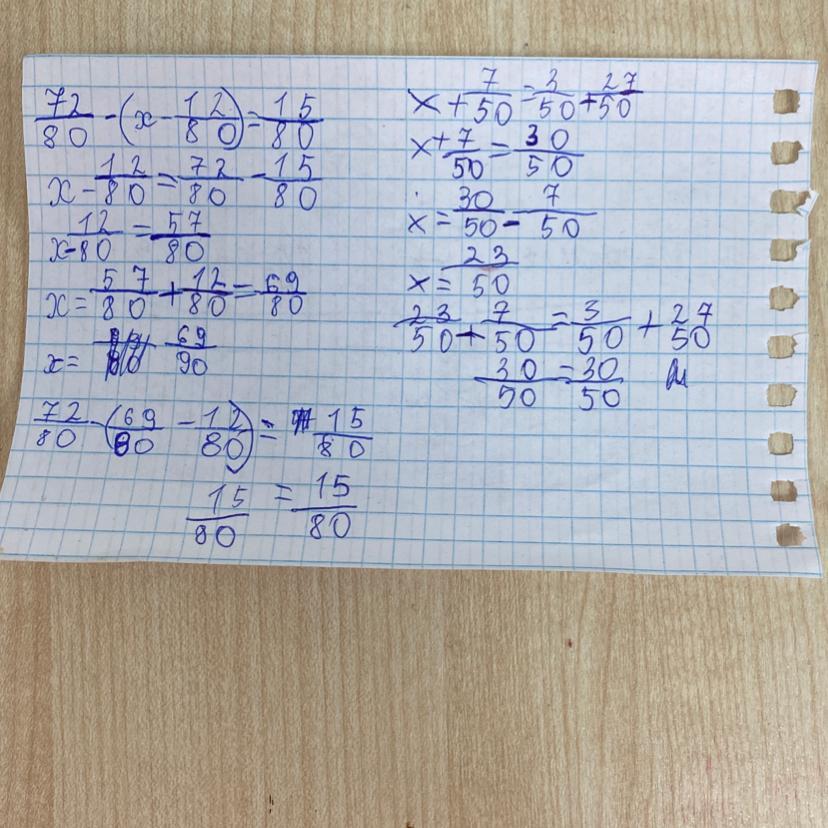 72/80 - (x - 12/80) = 15/80
x - 12/80 = 72/80 - 15/80
x - 12/80 = 57/80
x = 57/80 + 12/80 = 69/80
x = 69/90
72/80 - (69/80 - 12/80) = 15/80
15/80 = 15/80
x + 7/50 = 3/50 + 27/50
x + 7/50 = 30/50
x = 30/50 - 7/50
x = 23/50
23/50 + 7/50 = 3/50 + 27/50
30/50 = 30/50